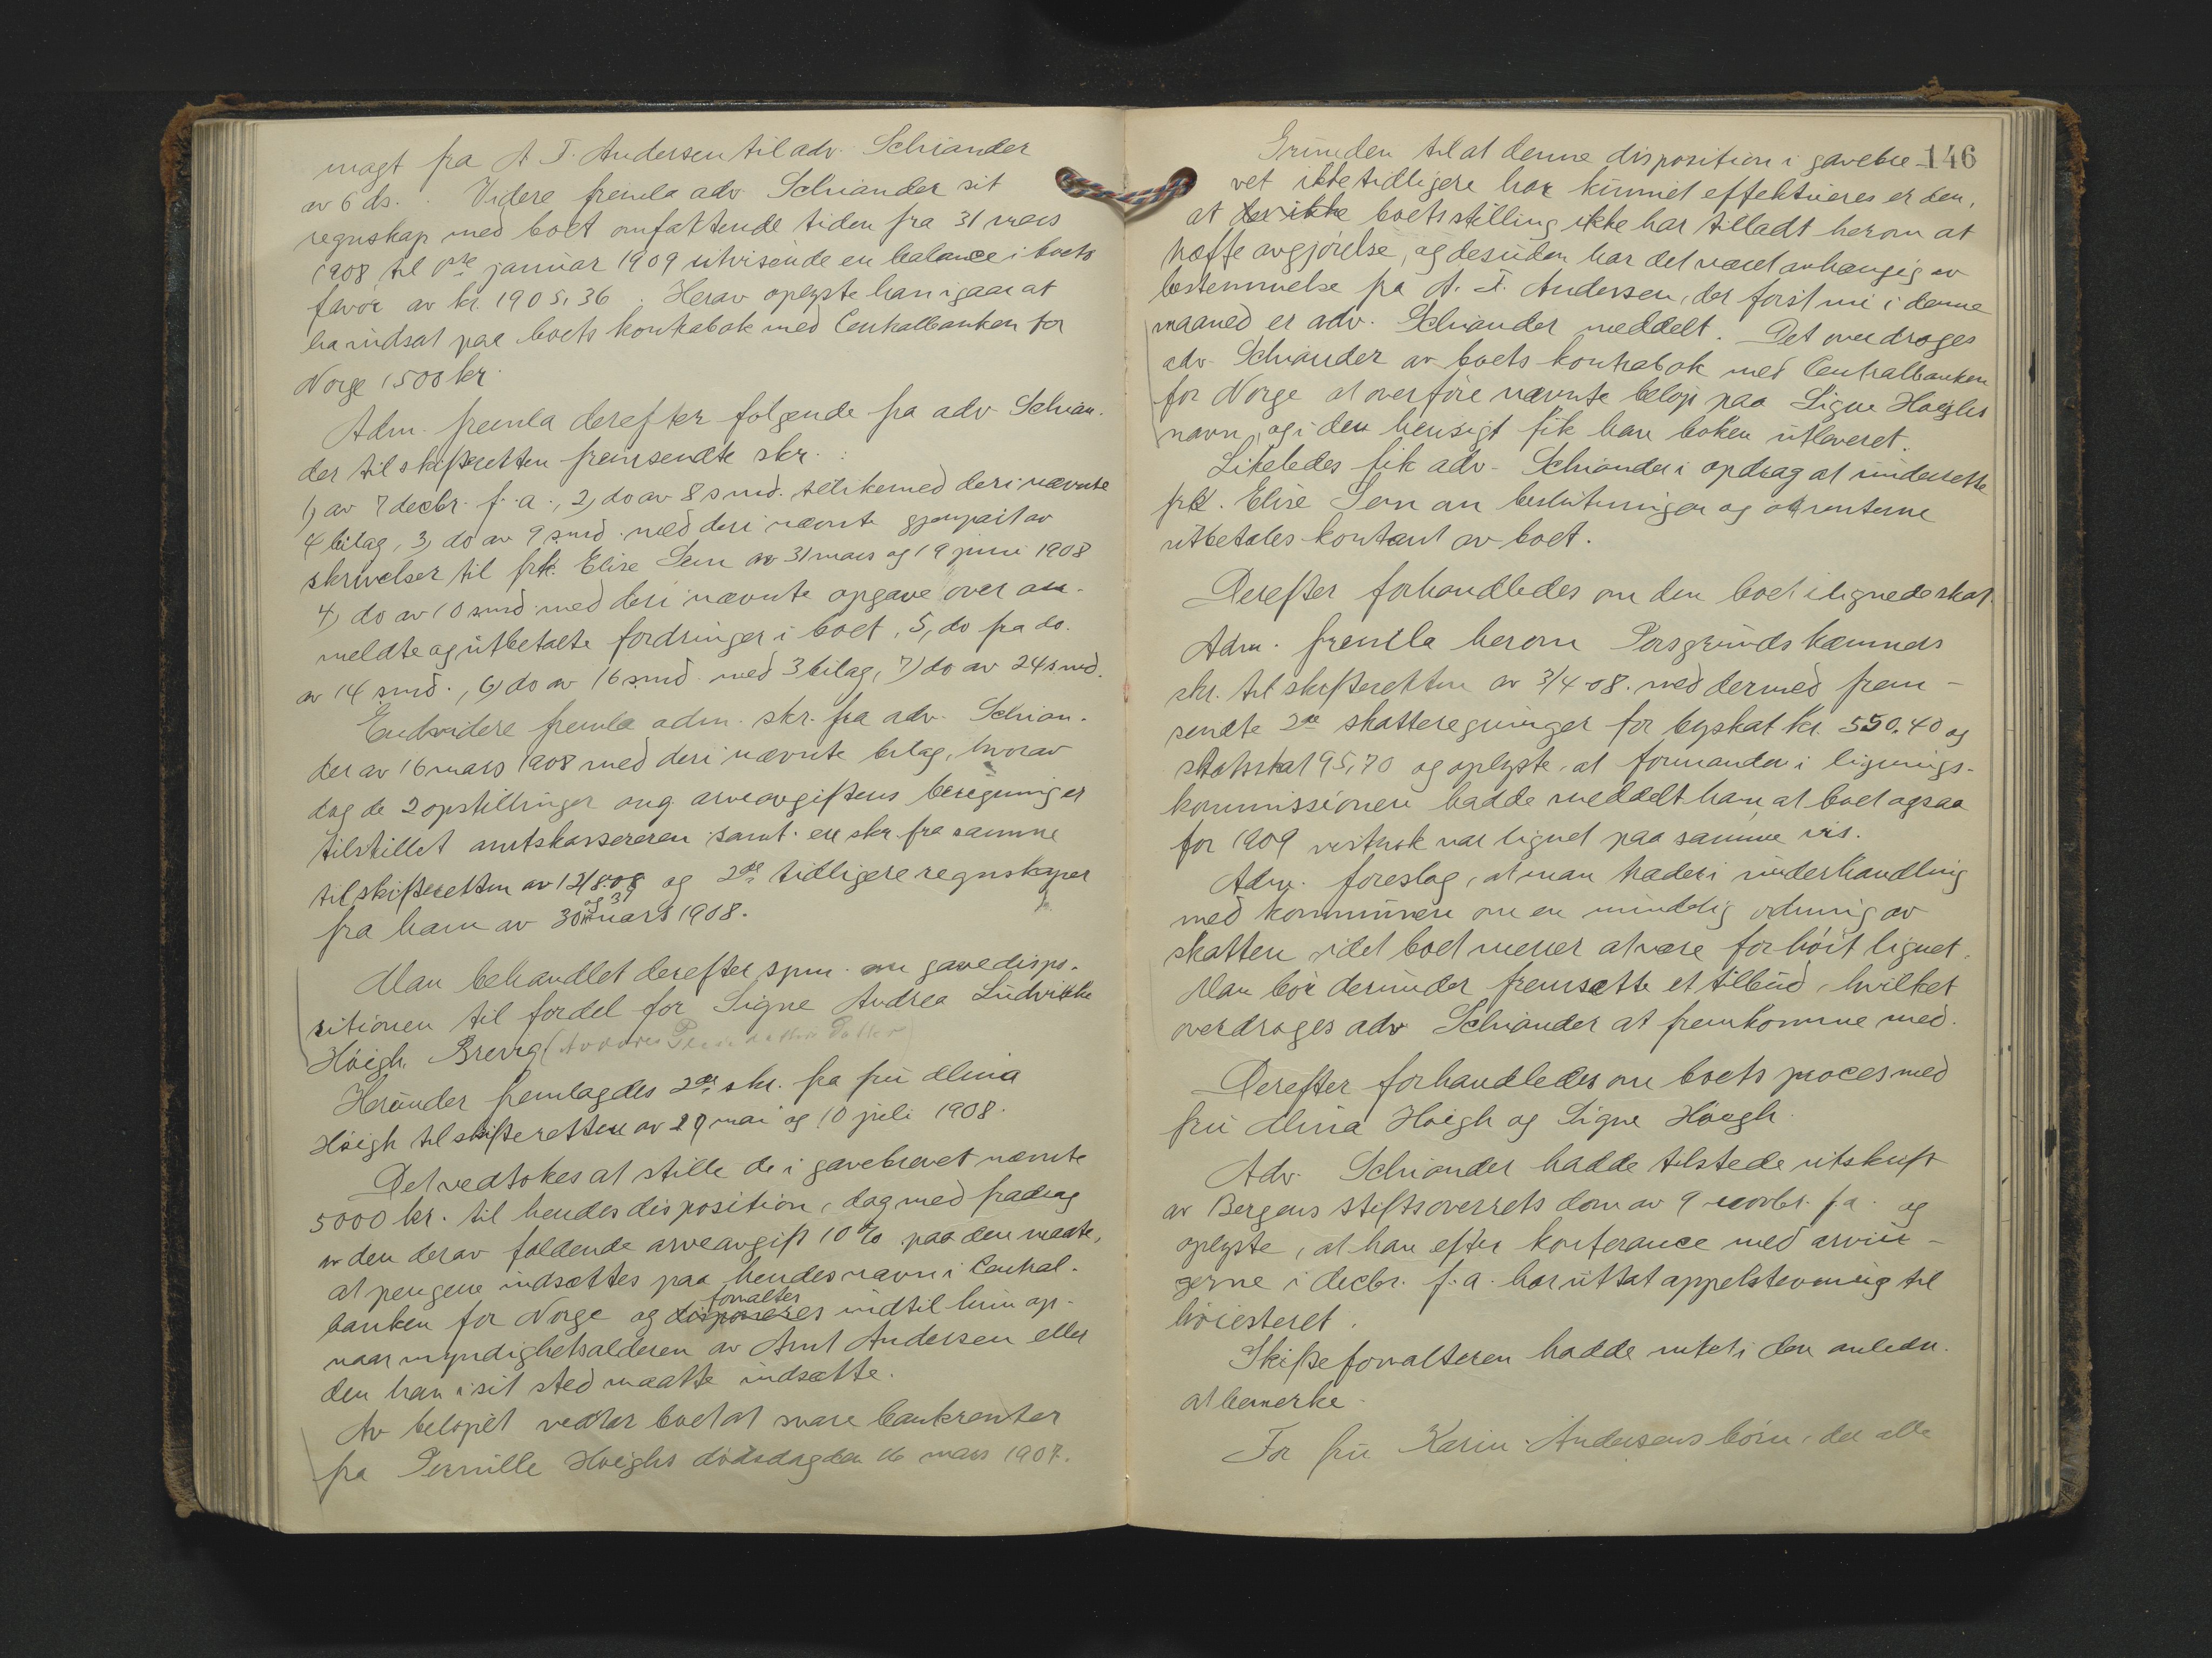 magt fra A. T. Andersen til adv. Schiander
av 6 ds. Videre fremla adv Schiander sit
regnskap med boet omfattende tiden fra 31 mars
1908 til 1ste januar 1909 utvisende en balance i boets
favør av kr. 1905,36. Herav oplyste han igaar at
ha indsat paa boets kontrabok med Centralbanken for
Norge 1500 kr.
Adm. fremla derefter følgende fra adv Schian-
der til skifteretten fremsendte skr. :
1) av 7 decbr. f. a., 2) do av 8 s md. tillikemed deri nævnte
4 bilag, 3) do av 9 s md. med deri nævnte gjenpart av
skrivelser til frk. Elise Sem av 31 mars og 19 juni 1908
4) do av 10 s md med deri nævnte opgave over an-
meldte og utbetalte fordringer i boet, 5) do fra do.
av 14 s md., 6) do av 16 s md med 3 bilag, 7) do av 24 s md.
Endvidere fremla adm. skr. fra adv. Schian-
der av 16 mars 1908 med deri nævnte bilag, hvorav
dog de 2 opstillinger ang. arveavgiftens beregning er
tilstillet amtskassereren samt en skr. fra samme
til skifteretten av 12/8.08 og 2de tidligere regnskaper
fra ham av 30 og 31 mars 1908.
Man behandlet derefter spm. om gavedispo-
sitionen til fordel for Signe Andrea Ludvikke
Høigh, Brevig
Herunder fremlagdes 2de skr. fra fru Alina
Høigh til skifteretten av 29 mai og 10 juli 1908.
Det vedtokes at stille de i gavebrevet nævnte
5000 kr. til hendes disposition, dog med fradrag
av den derav faldende arveavgift 10 % paa den maate,
at pengene indsættes paa hendes navn i Central-
banken for Norge og disponeres forvaltes indtil hun op-
naar myndighetsalderen av Arnt Andersen eller
den han i sit sted maatte indsætte.
Av beløpet vedtar boet at svare bankrenter
fra Pernille Høighs dødsdag den 16 mars 1907.
146
Grunden til at denne disposition i gavebre-
vet ikke tidligere har kunnet effektueres er den,
at der ikke boets stilling ikke har tilladt herom at
træffe avgjørelse, og desuden har det været avhængig av
bestemmelse fra A. T. Andersen, der først nu i denne
maaned er adv. Schiander meddelt. Det overdroges
adv. Schiander av boets kontrabok med Centralbanken
for Norge at overføre nævnte beløp paa Signe Høighs
navn, og i den hensigt fik han boken utleveret.
Likeledes fik adv. Schiander i opdrag at underrette
frk. Elise Sem om beslutningen og at renterne
utbetales kontant av boet.
Derefter forhandledes om den boet ilignede skat.
Adm. fremla herom Porsgrunds kæmners
skr. til skifteretten av 3/4 08. med dermed frem-
sendte 2de skatteregninger for byskat kr. 550,40 og
statsskat 95,70 og oplyste, at formanden i lignings-
kommissionen hadde meddelt ham at boet ogsaa
for 1909 vistnok var lignet paa samme vis.
Adm. foreslog, at man træder i underhandling
med kommunen om en mindelig ordning av
skatten idet boet mener at være for høit lignet.
Man bør derunder fremsætte et tilbud, hvilket
overdroges adv Schiander at fremkomme med.
Derefter forhandledes om boets proces med
fru Alina Høigh og Signe Høigh.
Adv. Schiander hadde tilstede utskrift
av Bergens stiftsoverrets dom av 9 novbr. f. a. og
oplyste, at han efter konferance med arvin-
gerne i decbr. f. a. har uttat appelstevning til
høiesteret.
Skifteforvalteren hadde intet i den anledn.
at bemerke.
For fru Karin Andersens børn, der alle